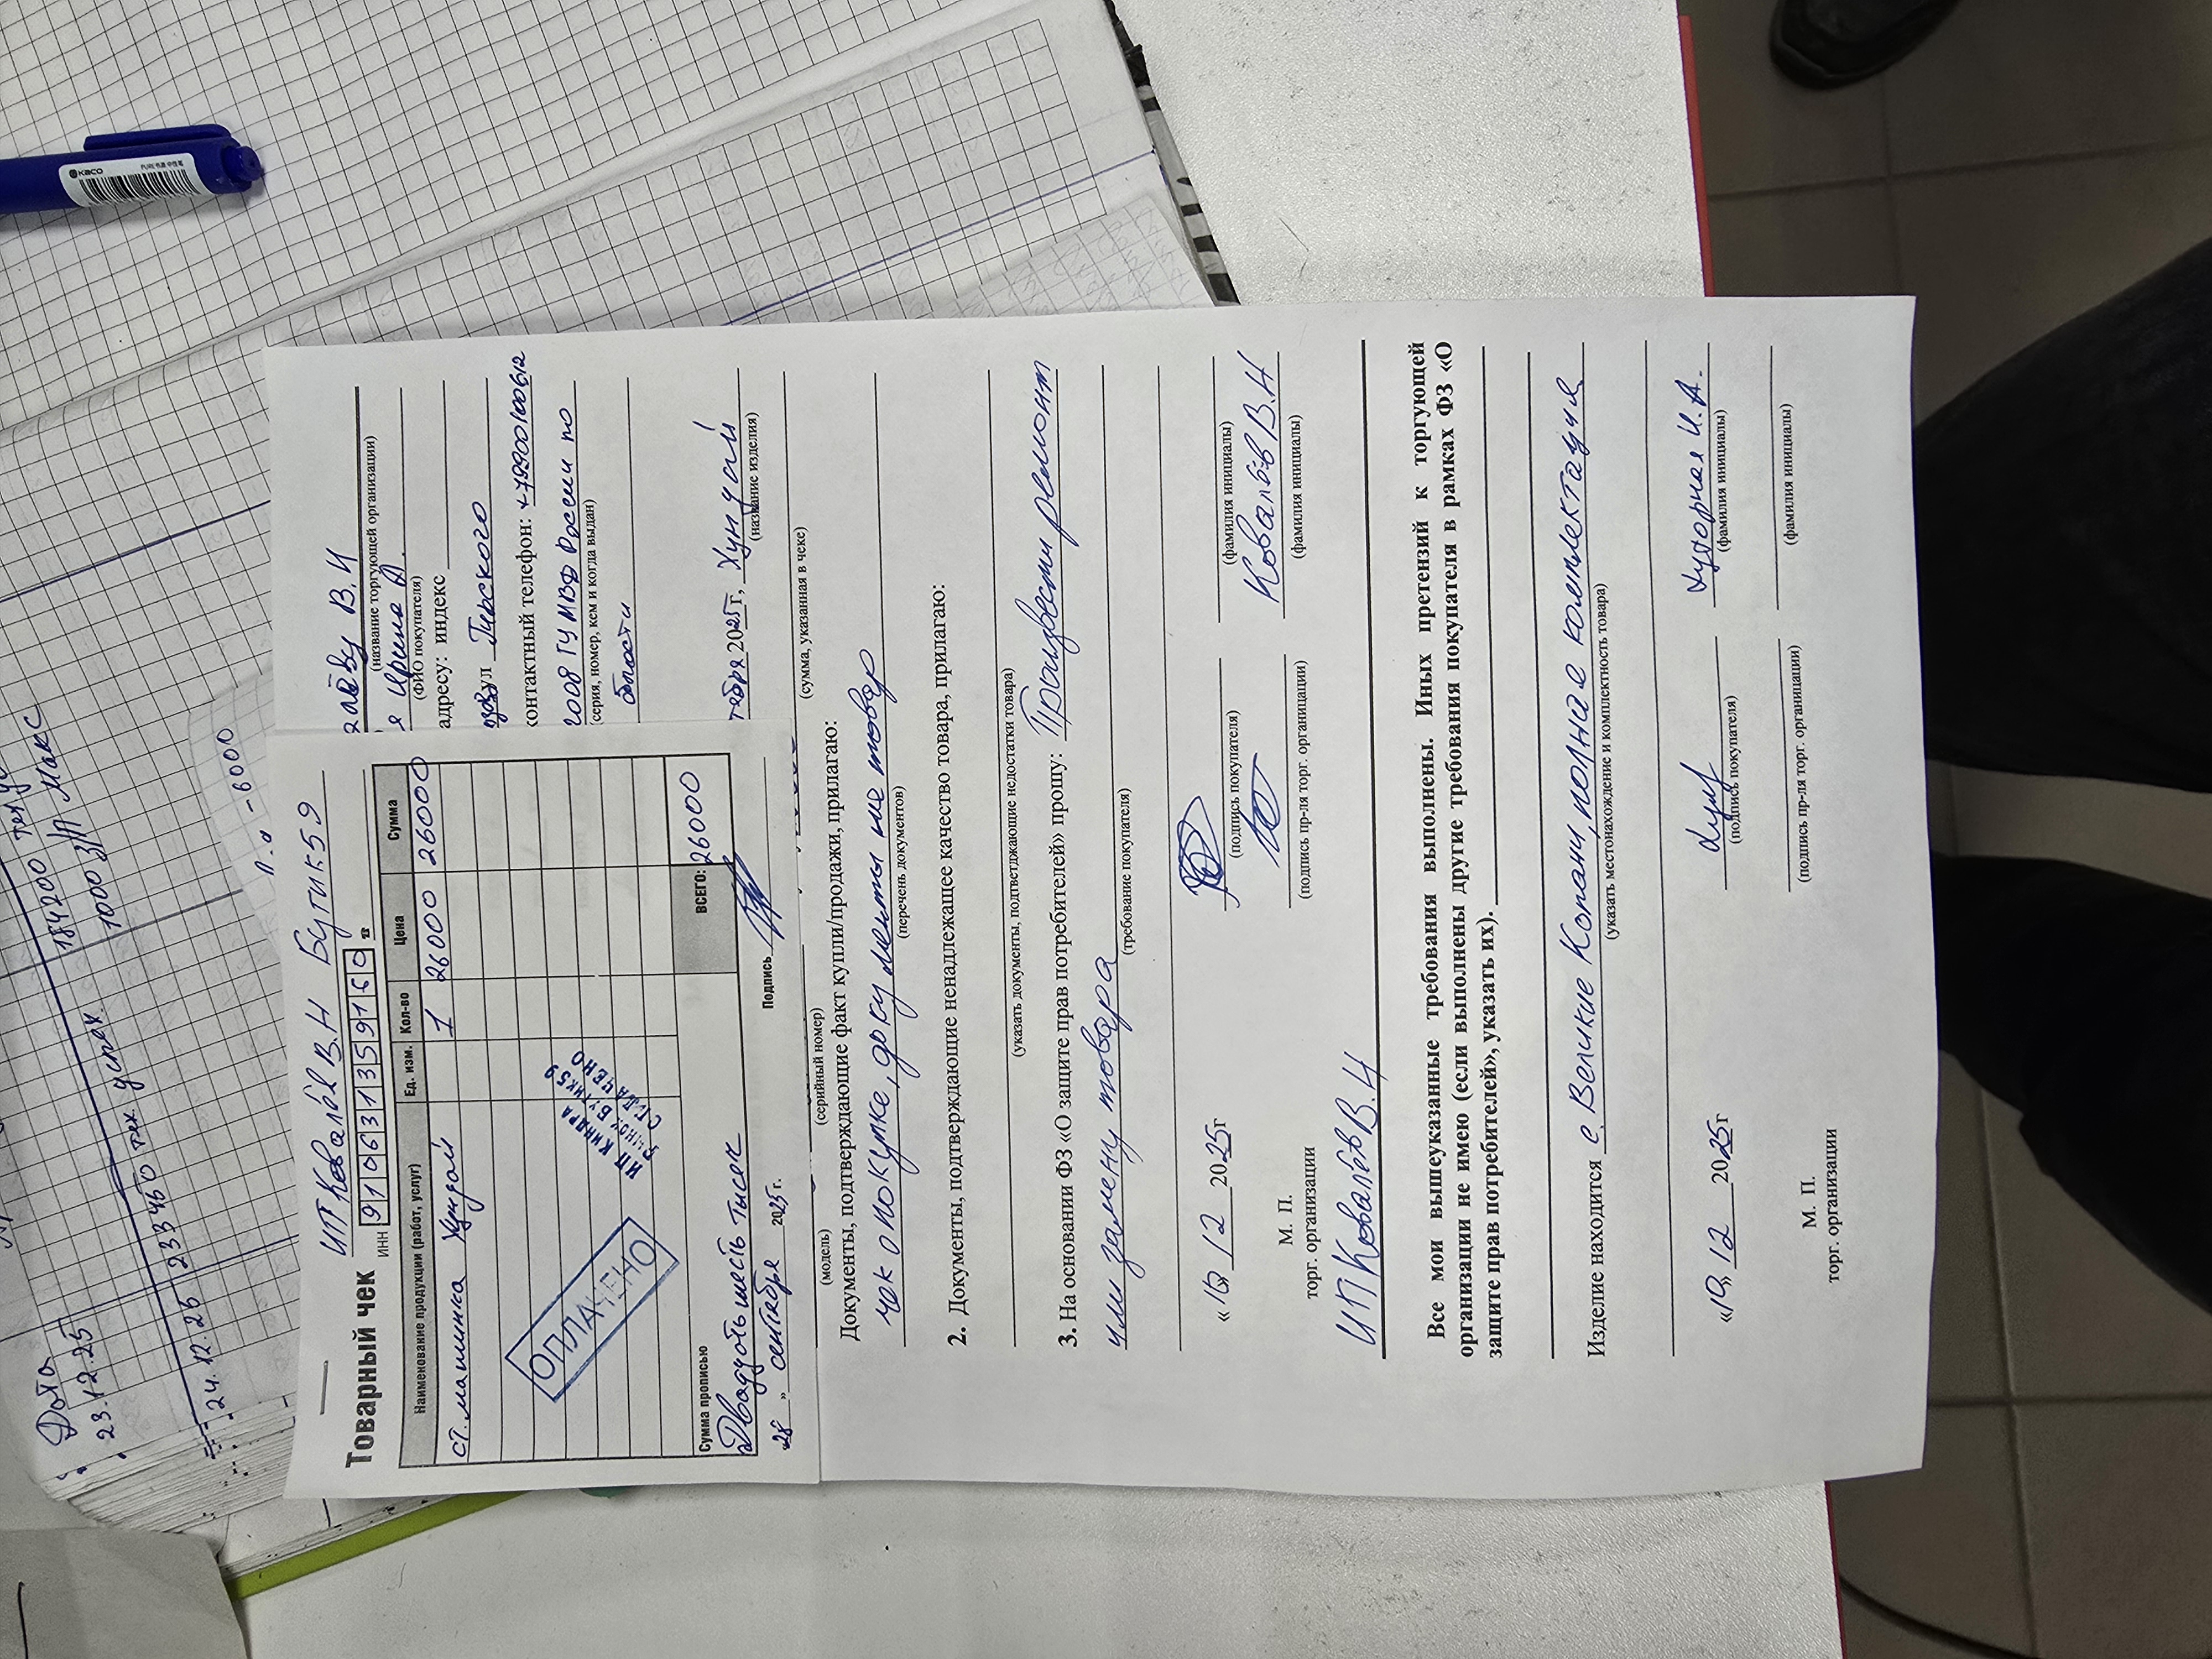 Дата
23.12.25
184200 тел
1000 З/П Макс
24.12.25 233450 тел успех.
п.о -6000
kaco
ИП Ковалёв В.Н Бутик 59
Товарный чек
ИНН 910631359160
Наименование продукции (работ, услуг) Ед. изм. Кол-во Цена Сумма
ст. машинка Хундай 1 26000 26000
ИП КИНДРА
РЫНОК БУТИК59
ОПЛАЧЕНО
ВСЕГО: 26000
Сумма прописью
Двадцать шесть тысяч
Подпись
«28» сентября 2025 г.
В.Н
(название торгующей организации)
я Ирина А.
(ФИО покупателя)
адресу: индекс
ул
контактный телефон: +79900100612
2008 ГУ МВД России по
(серия, номер, кем и когда выдан)
области
тября 2025г, Хундай
(название изделия)
(сумма, указанная в чеке)
(модель) (серийный номер)
Документы, подтверждающие факт купли/продажи, прилагаю:
чек о покупке, документы на товар
(перечень документов)
2. Документы, подтверждающие ненадлежащее качество товара, прилагаю:
(указать документы, подтветджающие недостатки товара)
3. На основании ФЗ «О защите прав потребителей» прошу: Произвести ремонт
или замену товара
(требование покупателя)
12 2025г
(подпись покупателя) (фамилия инициалы)
Ковалёв В.Н
М. П.
торг. организации
(подпись пр-ля торг. организации) (фамилия инициалы)
ИП Ковалёв В.Н
Все мои вышеуказанные требования выполнены. Иных претензий к торгующей
организации не имею (если выполнены другие требования покупателя в рамках ФЗ «О
защите прав потребителей», указать их).
Изделие находится с Великие Копани, полная комплектация
(указать местонахождение и комплектность товара)
«19» 12 2025г
(подпись покупателя) (фамилия инициалы)
М. П.
торг. организации
(подпись пр-ля торг. организации) (фамилия инициалы)